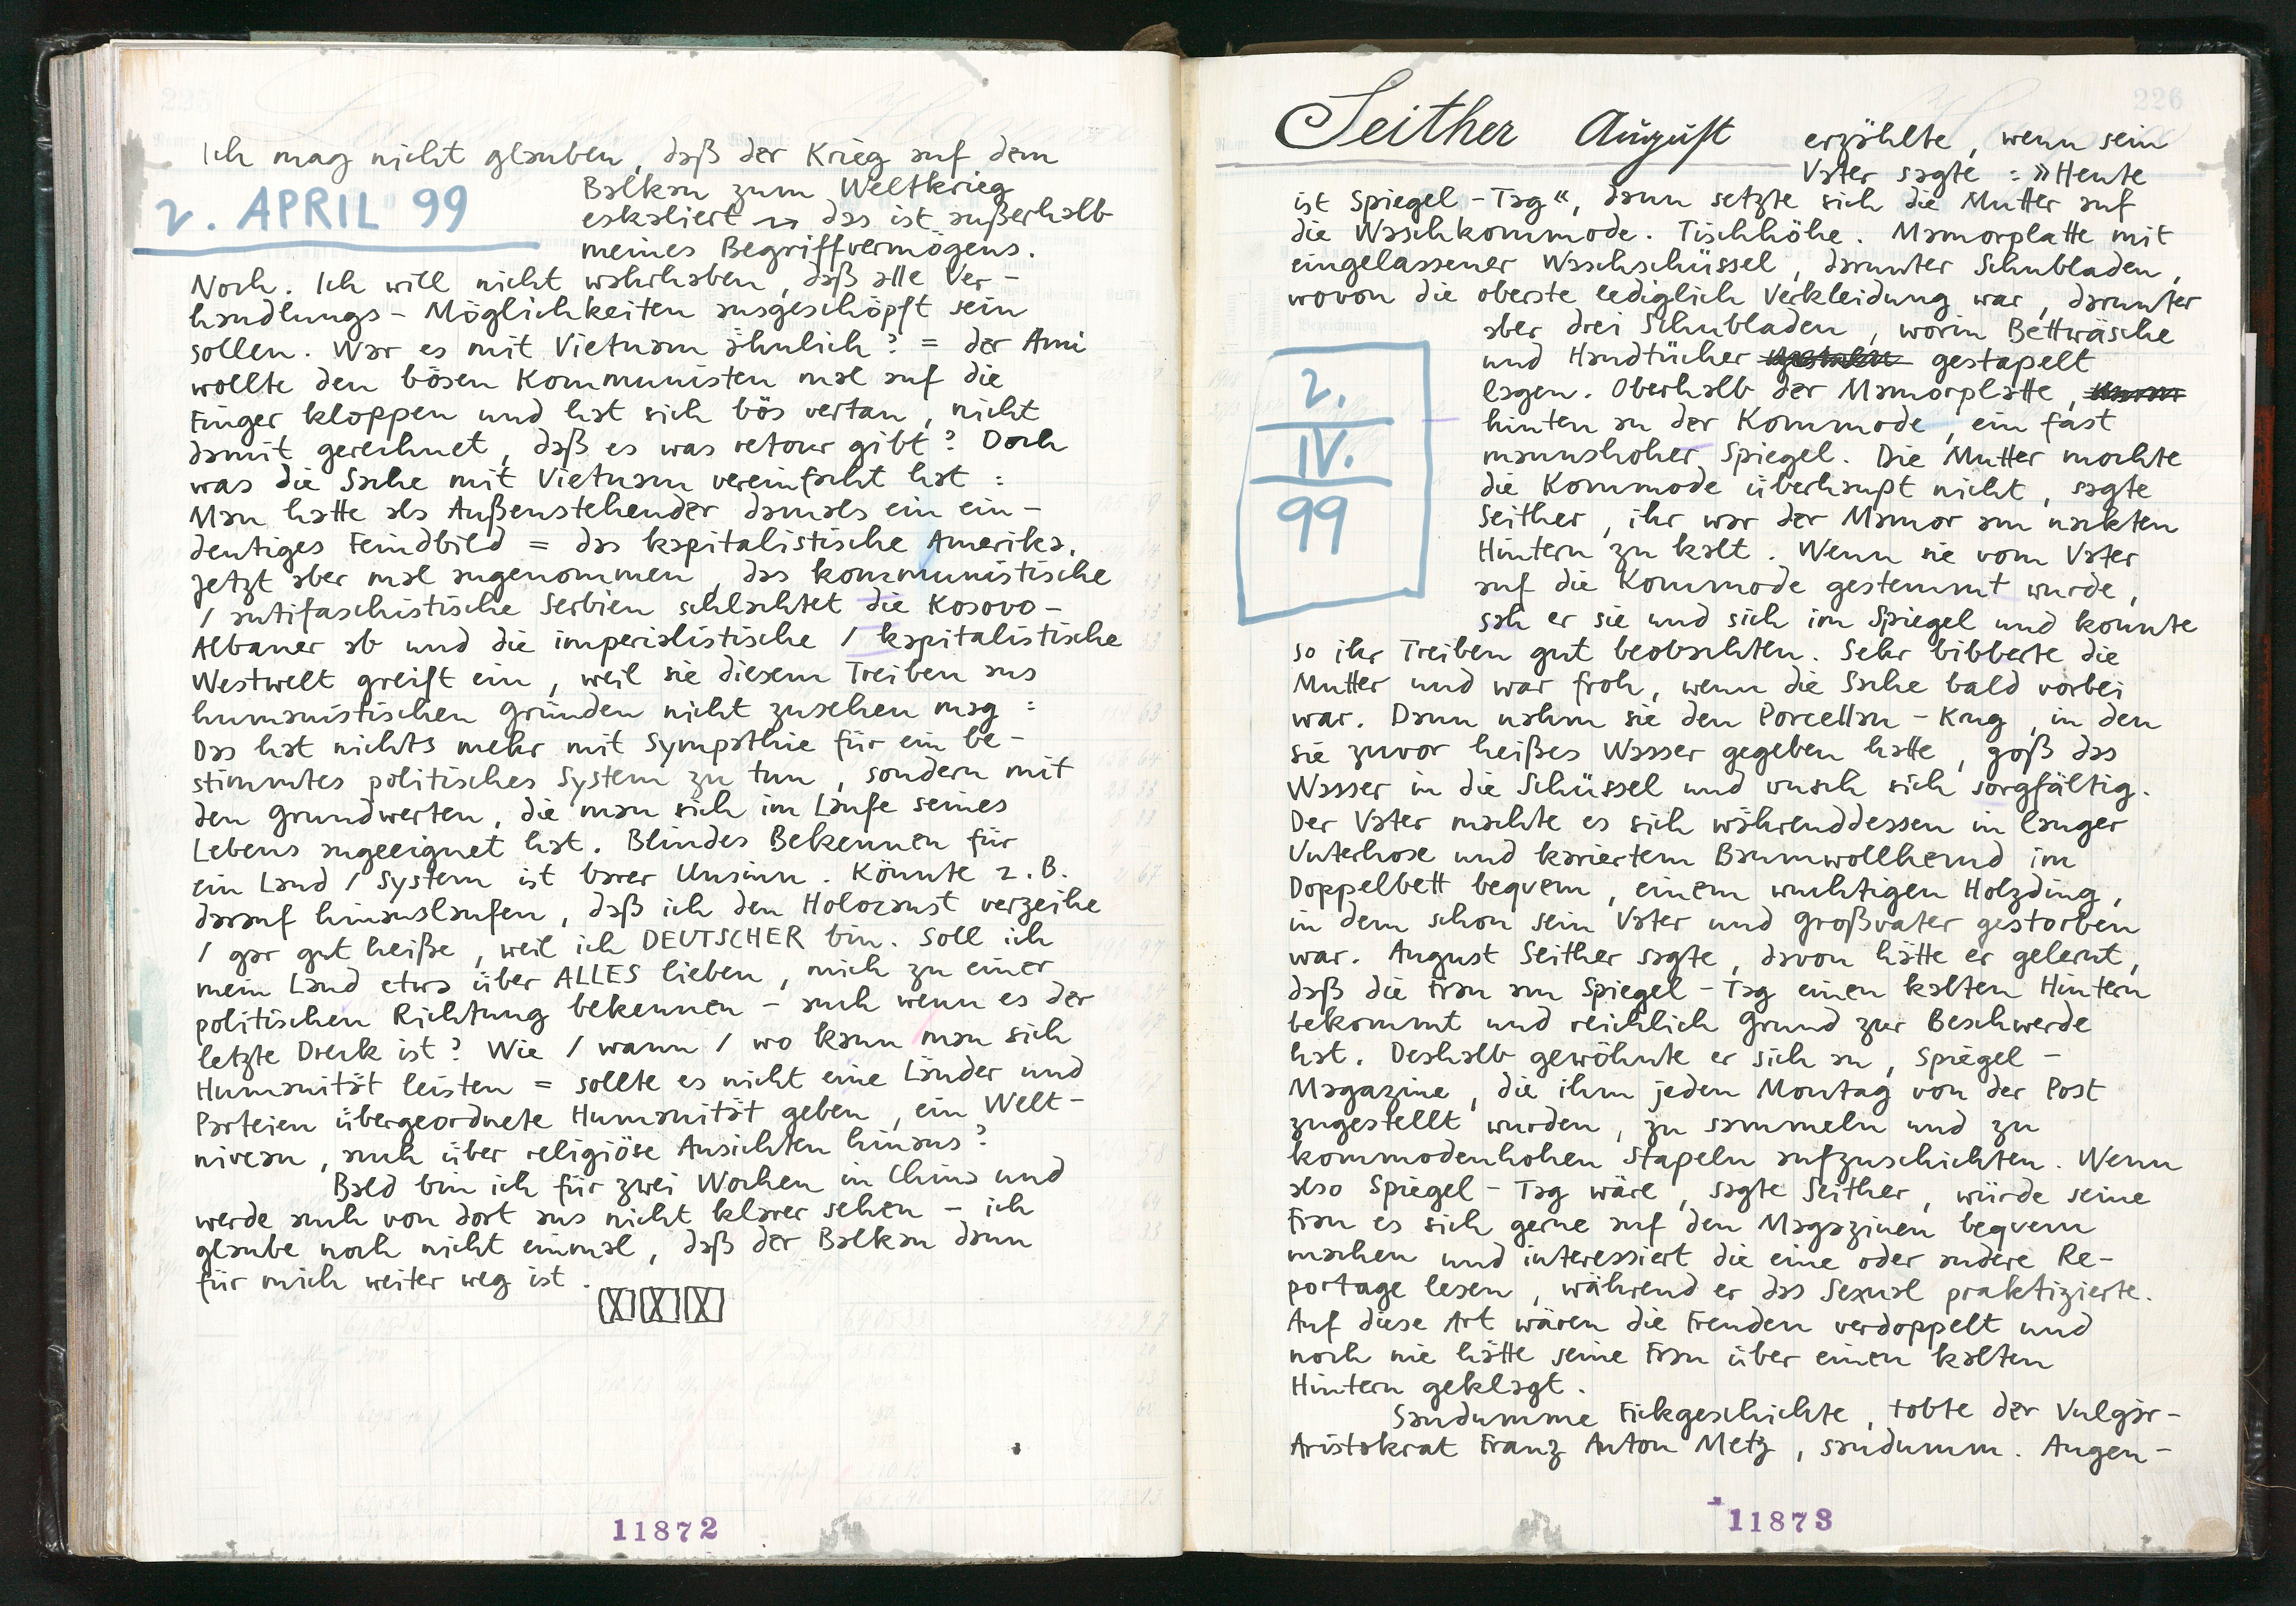 Ich mag nicht glauben, daß der Krieg auf dem
2. APRIL 99
Balkan zum Weltkrieg
eskaliert → das ist außerhalb
meines Begriffvermögens.
Noch. Ich will nicht wahrhaben, daß alle Ver-
handlungs-Möglichkeiten ausgeschöpft sein
sollen. War es mit Vietnam ähnlich? = der Ami
wollte den bösen Kommunisten mal auf die
Finger kloppen und hat sich bös vertan, nicht
damit gerechnet, daß es was retour gibt? Doch
was die Sache mit Vietnam vereinfacht hat:
Man hatte als Außenstehender damals ein ein-
deutiges Feindbild = das kapitalistische Amerika.
Jetzt aber mal angenommen, das kommunistische
/ antifaschistische Serbien schlachtet die Kosovo-
Albaner ab und die imperialistische / kapitalistische
Westwelt greift ein, weil sie diesem Treiben aus
humanistischen Gründen nicht zusehen mag:
Das hat nichts mehr mit Sympathie für ein be-
stimmtes politisches System zu tun, sondern mit
den Grundwerten, die man sich im Laufe seines
Lebens angeeignet hat. Blindes Bekennen für
ein Land / System ist barer Unsinn. Könnte z.B.
darauf hinauslaufen, daß ich den Holocaust verzeihe
/ gar gut heiße, weil ich DEUTSCHER bin. Soll ich
mein Land etwa über ALLES lieben, mich zu einer
politischen Richtung bekennen - auch wenn es der
letzte Dreck ist? Wie / wann / wo kann man sich
Humanität leisten = sollte es nicht eine Länder und
Parteien übergeordnete Humanität geben, ein Welt-
niveau, auch über religiöse Ansichten hinaus?
Bald bin ich für zwei Wochen in China und
werde auch von dort aus nicht klarer sehen - ich
glaube noch nicht einmal, daß der Balkan dann
für mich weiter weg ist.
11872
226
Seither August erzählte, wenn sein
Vater sagte: »Heute
ist Spiegel-Tag«, dann setzte sich die Mutter auf
die Waschkommode. Tischhöhe. Mamorplatte mit
eingelassener Waschschüssel, darunter Schubladen,
wovon die oberste lediglich Verkleidung war, darunter
aber drei Schubladen, worin Bettwäsche
und Handtücher gestapelt
lagen. Oberhalb der Mamorplatte,
hinten an der Kommode, ein fast
mannshoher Spiegel. Die Mutter mochte
die Kommode überhaupt nicht, sagte
Seither, ihr war der Mamor am nackten
Hintern zu kalt. Wenn sie vom Vater
auf die Kommode gestemmt wurde,
sah er sie und sich im Spiegel und konnte
2.
IV.
99
so ihr Treiben gut beobachten. Sehr bibberte die
Mutter und war froh, wenn die Sache bald vorbei
war. Dann nahm sie den Porcellan-Krug, in den
sie zuvor heißes Wasser gegeben hatte, goß das
Wasser in die Schüssel und wusch sich sorgfältig.
Der Vater machte es sich währenddessen in langer
Unterhose und kariertem Baumwollhemd im
Doppelbett bequem, einem wuchtigen Holzding,
in dem schon sein Vater und Großvater gestorben
war. August Seither sagte, davon hätte er gelernt,
daß die Frau am Spiegel-Tag einen kalten Hintern
bekommt und reichlich Grund zur Beschwerde
hat. Deshalb gewöhnte er sich an, Spiegel-
Magazine, die ihm jeden Montag von der Post
zugestellt wurden, zu sammeln und zu
kommodenhohen Stapeln aufzuschichten. Wenn
also Spiegel-Tag wäre, sagte Seither, würde seine
Frau es sich gerne auf den Magazinen bequem
machen und interessiert die eine oder andere Re-
portage lesen, während er das Sexual praktizierte.
Auf diese Art wären die Freuden verdoppelt und
noch nie hätte seine Frau über einen kalten
Hintern geklagt.
Saudumme Fickgeschichte, tobte der Vulgär-
Aristokrat Franz Anton Metz, saudumm. Augen-
11873